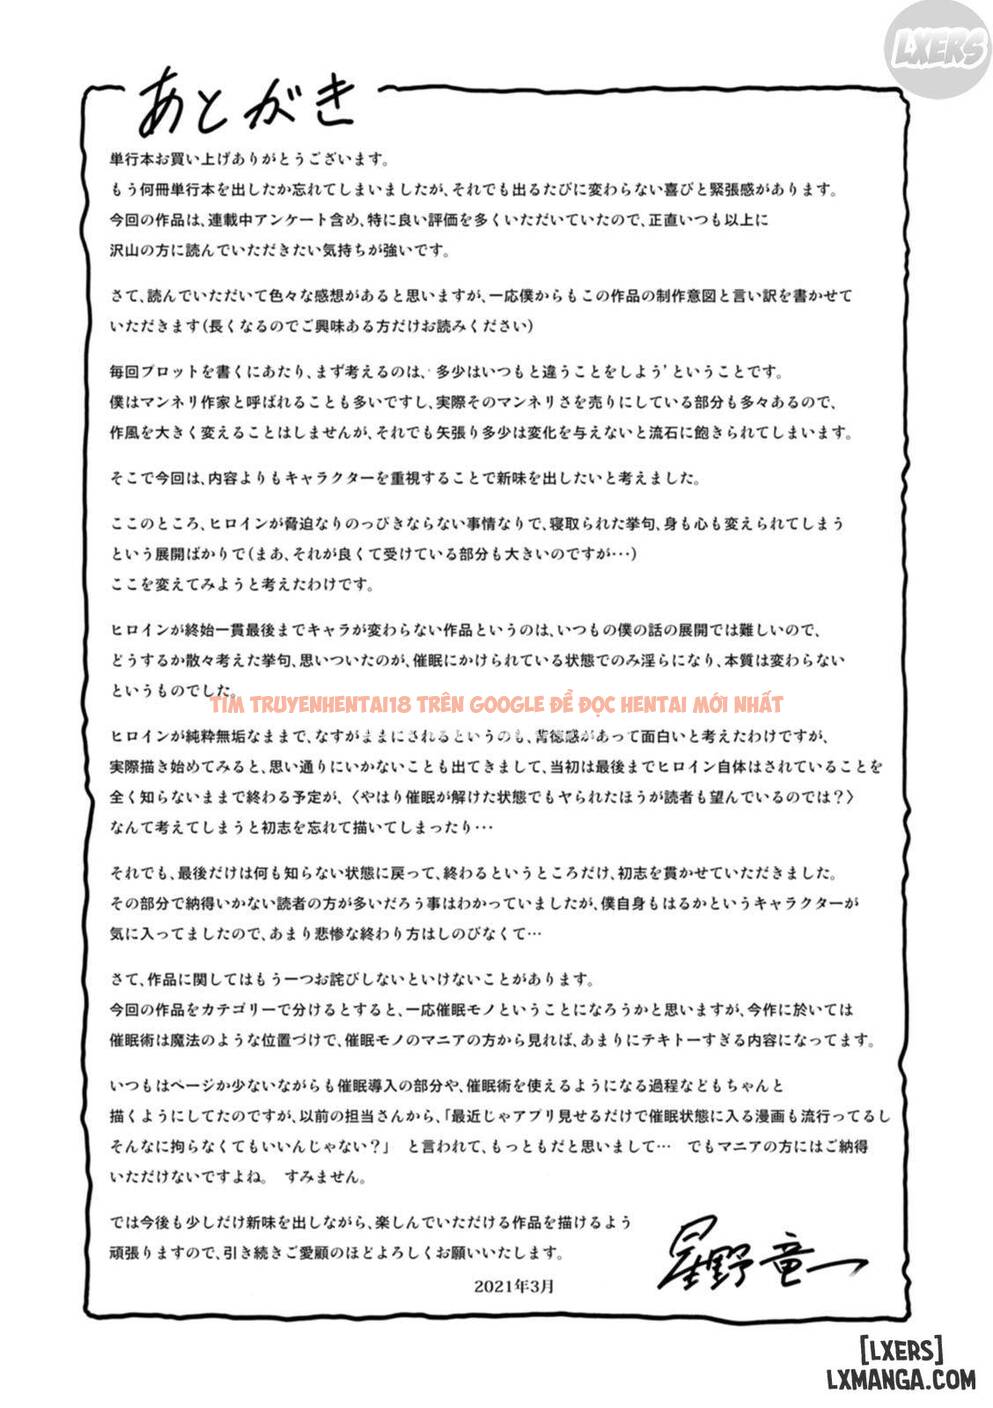 LXERS
あとがき
単行本お買い上げありがとうございます。
もう何冊単行本を出したか忘れてしまいましたが、それでも出るたびに変わらない喜びと緊張感があります。
今回の作品は、連載中アンケート含め、特に良い評価を多くいただいていたので、正直いつも以上に
沢山の方に読んでいただきたい気持ちが強いです。
さて、読んでいただいて色々な感想があると思いますが、一応僕からもこの作品の制作意図と言い訳を書かせて
いただきます(長くなるのでご興味ある方だけお読みください)
毎回プロットを書くにあたり、まず考えるのは、‘多少はいつもと違うことをしよう’ということです。
僕はマンネリ作家と呼ばれることも多いですし、実際そのマンネリさを売りにしている部分も多々あるので、
作風を大きく変えることはしませんが、それでも矢張り多少は変化を与えないと流石に飽きられてしまいます。
そこで今回は、内容よりもキャラクターを重視することで新味を出したいと考えました。
ここのところ、ヒロインが脅迫なりのっぴきならない事情なりで、寝取られた挙句、身も心も変えられてしまう
という展開ばかりで(まあ、それが良くて受けている部分も大きいのですが･･･)
ここを変えてみようと考えたわけです。
ヒロインが終始一貫最後までキャラが変わらない作品というのは、いつもの僕の話の展開では難しいので、
どうするか散々考えた挙句、思いついたのが、催眠にかけられている状態でのみ淫らになり、本質は変わらない
というものでした。
TÌM TRUYENHENTAI18 TRÊN GOOGLE ĐỂ ĐỌC HENTAI MỚI NHẤT
ヒロインが純粋無垢なままで、なすがままにされるというのも、背徳感があって面白いと考えたわけですが、
実際描き始めてみると、思い通りにいかないことも出てきまして、当初は最後までヒロイン自体はされていることを
全く知らないままで終わる予定が、〈やはり催眠が解けた状態でもヤられたほうが読者も望んでいるのでは?〉
なんて考えてしまうと初志を忘れて描いてしまったり･･･
それでも、最後だけは何も知らない状態に戻って、終わるというところだけ、初志を貫かせていただきました。
その部分で納得いかない読者の方が多いだろう事はわかっていましたが、僕自身もはるかというキャラクターが
気に入ってましたので、あまり悲惨な終わり方はしのびなくて…
さて、作品に関してはもう一つお詫びしないといけないことがあります。
今回の作品をカテゴリーで分けるとすると、一応催眠モノということになろうかと思いますが、今作に於いては
催眠術は魔法のような位置づけで、催眠モノのマニアの方から見れば、あまりにテキトーすぎる内容になってます。
いつもはページか少ないながらも催眠導入の部分や、催眠術を使えるようになる過程などもちゃんと
描くようにしてたのですが、以前の担当さんから、「最近じゃアプリ見せるだけで催眠状態に入る漫画も流行ってるし
そんなに拘らなくてもいいんじゃない?」 と言われて、もっともだと思いまして… でもマニアの方にはご納得
いただけないですよね。 すみません。
では今後も少しだけ新味を出しながら、楽しんでいただける作品を描けるよう
頑張りますので、引き続きご愛顧のほどよろしくお願いいたします。
星野竜一
2021年3月
[LXERS]
LXMANGA.COM